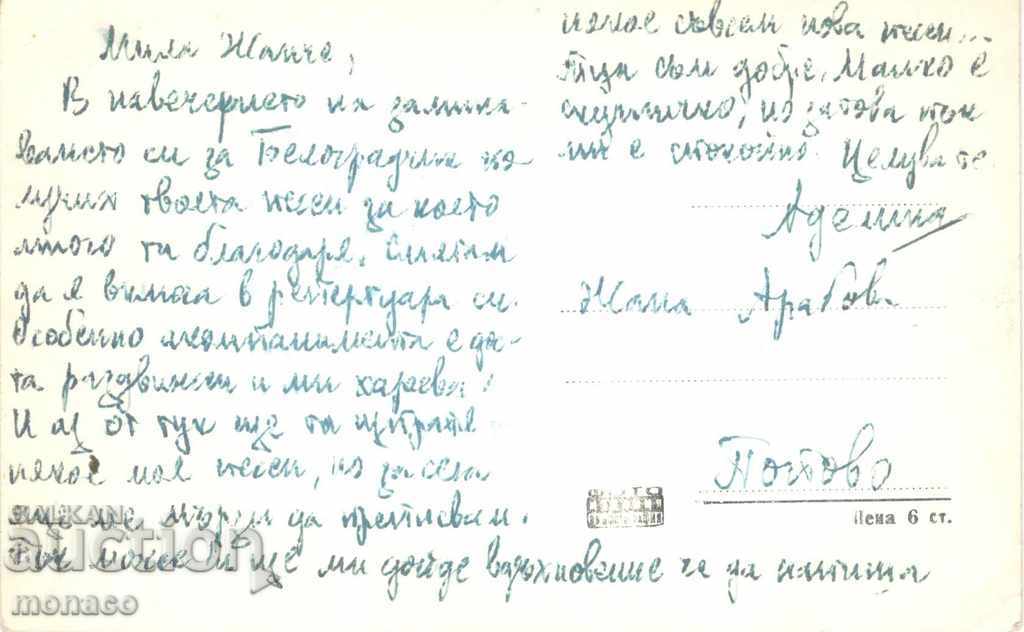 Мила Жанче,
В навечерието на замина-
ването си за Белоградчик по-
лучих твоята песен за което
много ти благодаря. Смятам
да я включа в репертуара си.
Особенно акомпанимента е дос-
та раздвижен и ми харесва!
И аз от тук ще ти изпратя
някоя моя песен, но засега
още не мързи да преписвам.
Тук може би ще ми дойде вдъхновение че да напиша
някоя съвсем нова песен...
Тъй съм добре, Малко е
скучничко, но затова пък
ми е спокойно. Целува те
Аделина
Жана Арабова
Попово
ФОТО
Цена 6 ст.
BALKAN
auction
monaco